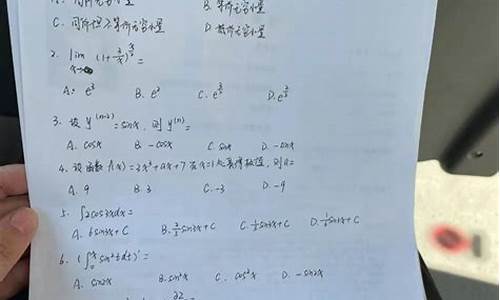 A. 同阶无穷小量 B. 等价无穷小量
C. 同阶但不等价无穷小量 D. 高阶无穷小量
2. lim (1+ 2/x)^ =
A. e³ B. e² C. e^ D. e^
3. 设 y^(n-2) = sinx, 则 y^(n) =
A. cosx B. -cosx C. sinx D. -sinx
4. 设函数 f(x)=3x³+ax+7 在x=1处取得极值, 则a=
A. 9 B. 3 C. -3 D. -9
5. ∫2cos3xdx=
A. 6sin3x+C B. 2/3 sin3x+C C. 1/3 sin3x+C D. 1/6 sin3x+C
6. (∫₀ˣ sin²tdt)' =
A. sin2x B. sin²x C. cos²x D. -sin2x